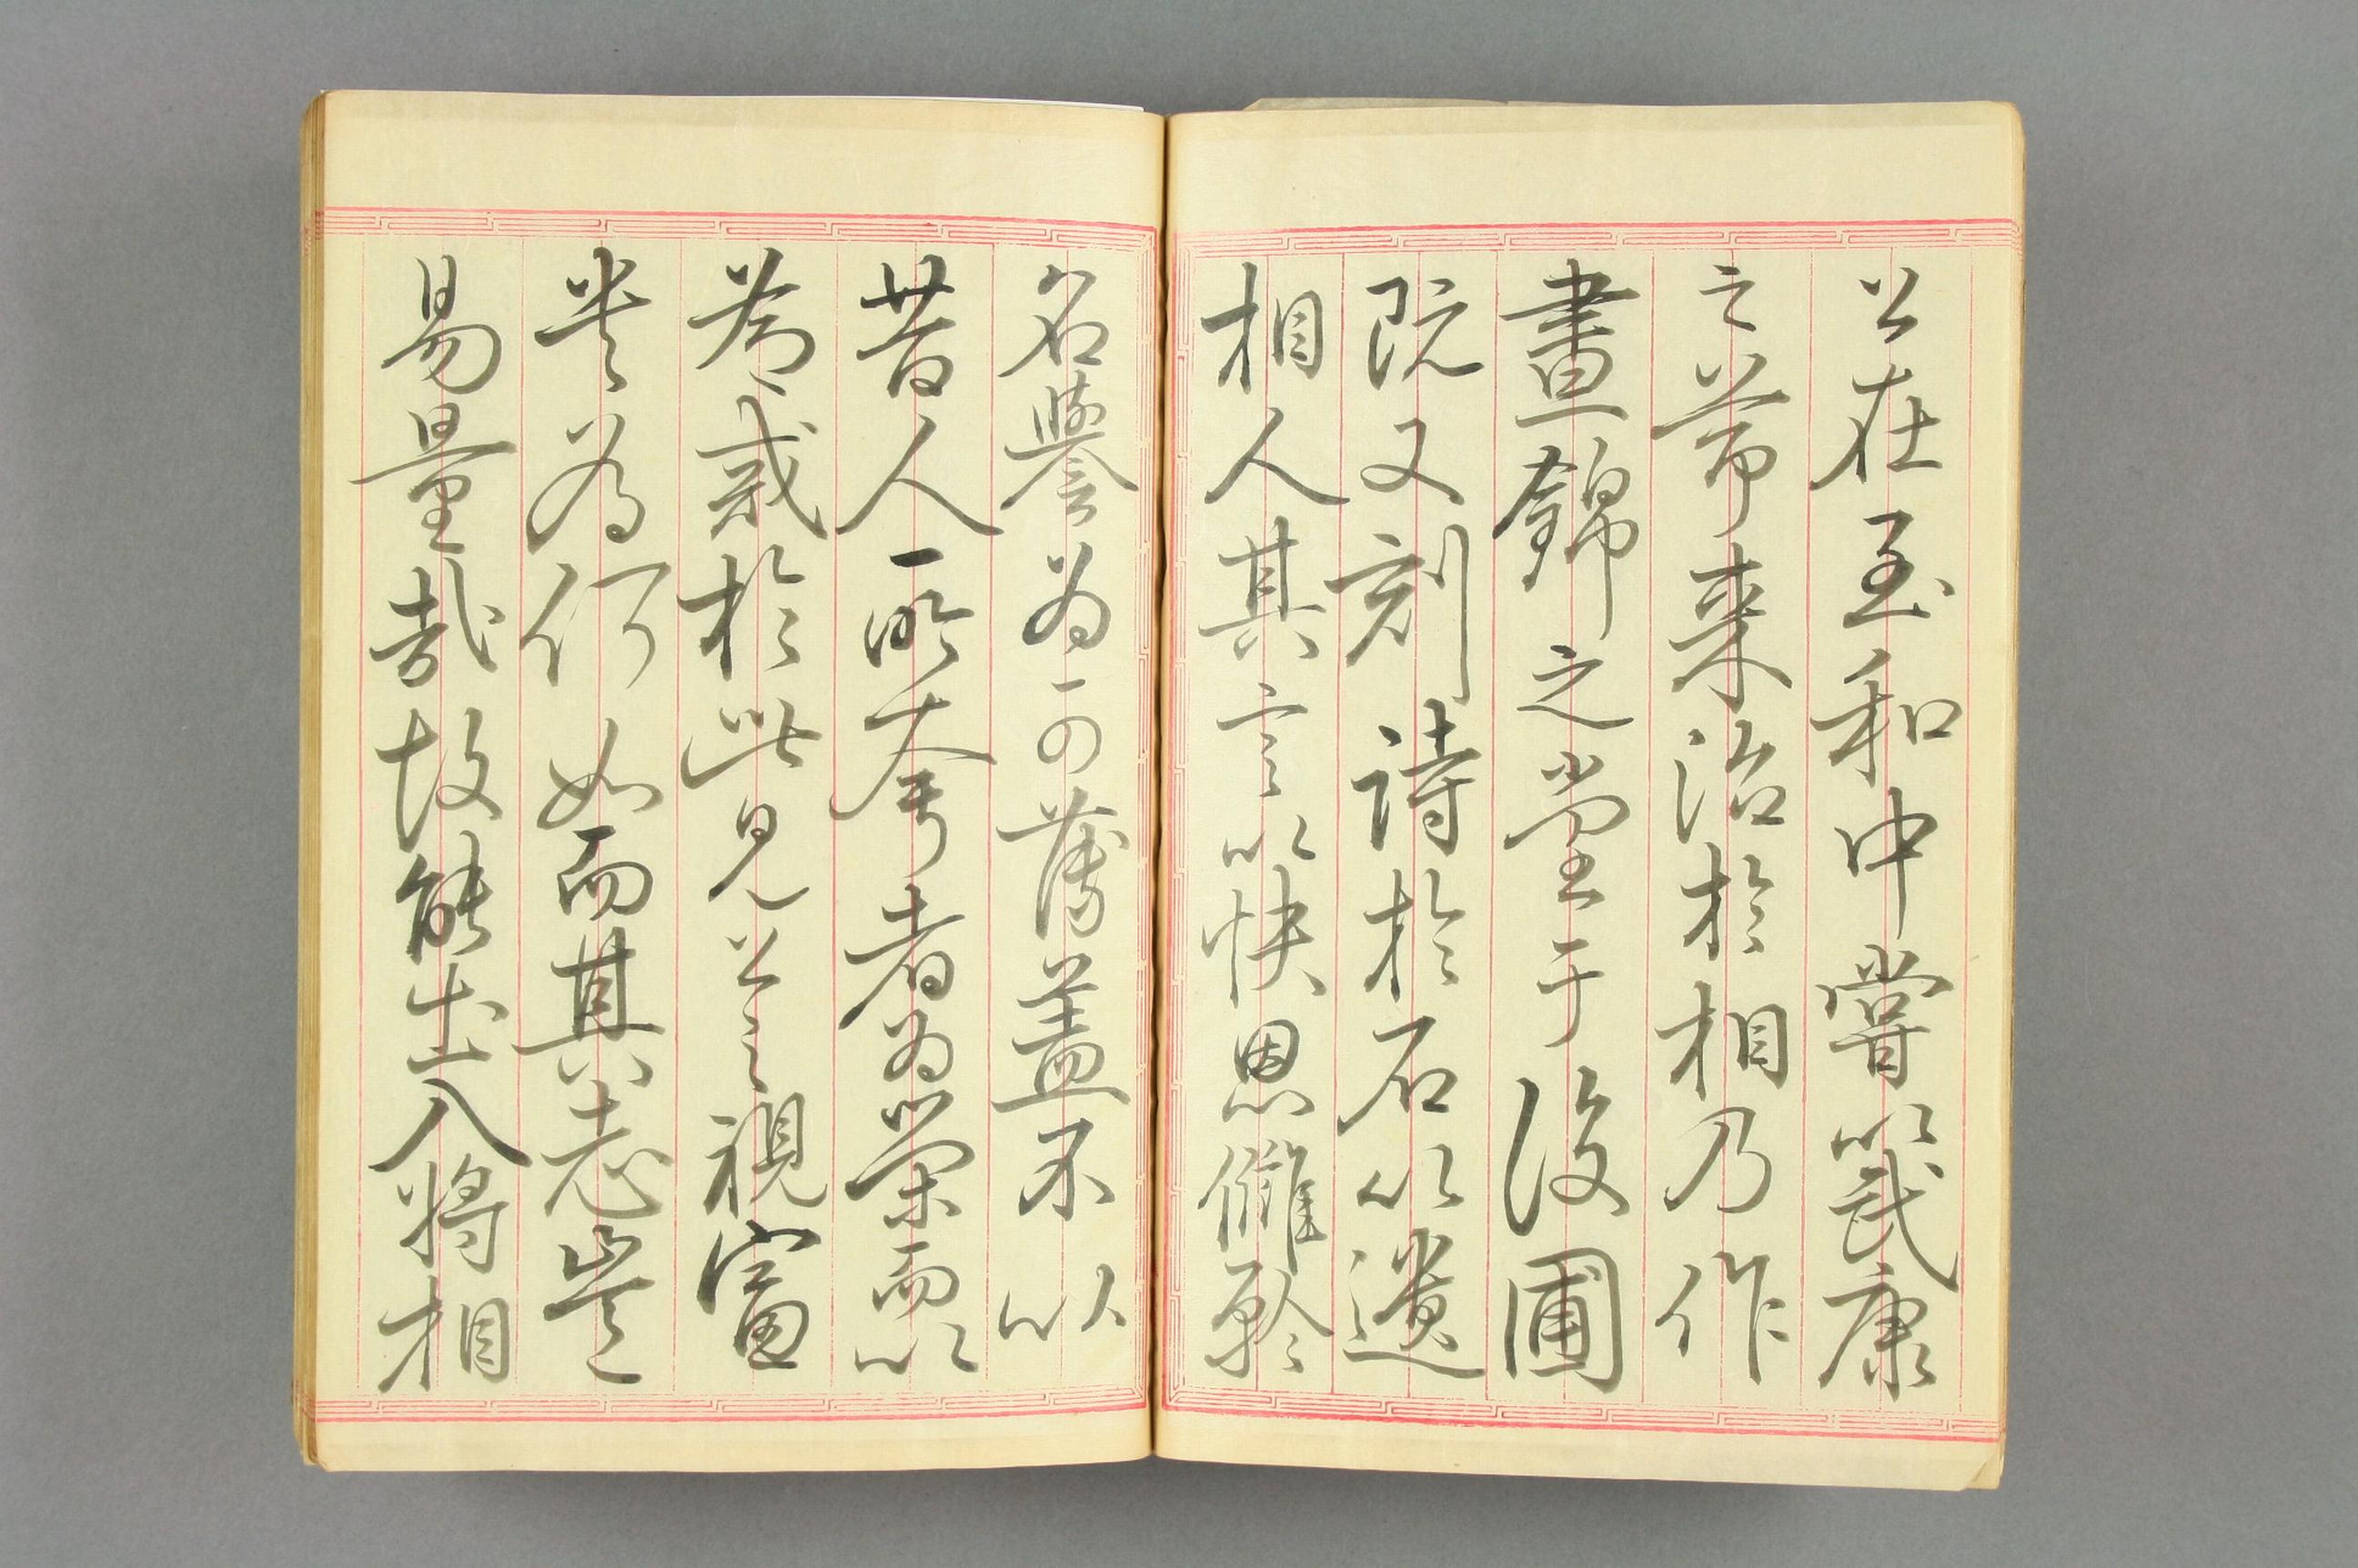 公在至和中嘗以武康
之節来治於相乃作
晝錦之堂于後圃
既又刻詩於石以遺
相人其言以快恩讎矜
名譽為可薄蓋不以
昔人所夸者為榮而以
為戒於此見公之視富
貴為何如而其志豈
易量哉故能出入將相